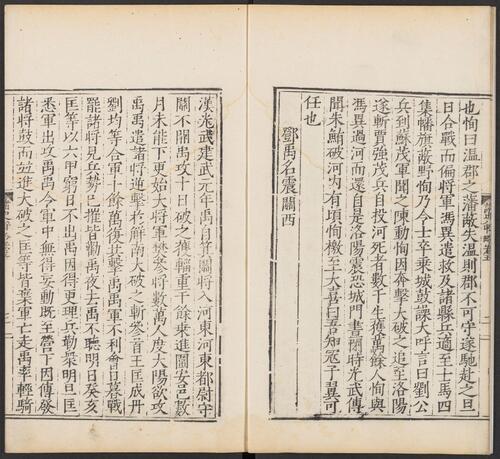 也恂曰溫郡之藩蔽失溫則郡不可守遂馳赴之旦
日合戰而偏將軍馮異遣救及諸縣兵適至士馬四
集幡旗蔽野恂乃令士卒乗城鼓譟大呼言曰劉公
兵到蘇茂軍聞之陳動恂因奔擊大破之追至洛陽
遂斬賈強茂兵自投河死者數千生獲萬餘人恂與
馮異過河而還自是洛陽震恐城門晝閉時光武傳
聞朱鮪破河内有頃恂檄至大喜曰吾知寇子翼可
任也
鄧禹名震關西
漢光武建武元年禹自箕關將入河東河東都尉守
關不開禹攻十日破之獲輜重千餘乗進圍安邑數
月未能下更始大將軍樊參將數萬人度大陽欲攻
禹禹遣諸將逆擊於解南大破之斬參首王匡成丹
劉均等合軍十餘萬復共擊禹禹軍不利會日暮戰
罷諸將見兵勢已摧皆勸禹夜去禹不聽明日癸亥
匡等以六甲窮日不出禹因得更理兵勒衆明旦匡
悉軍出攻禹禹令軍中無得妄動既至營下因傳發
諸將鼓而並進大破之匡等皆棄軍亡走禹率輕騎